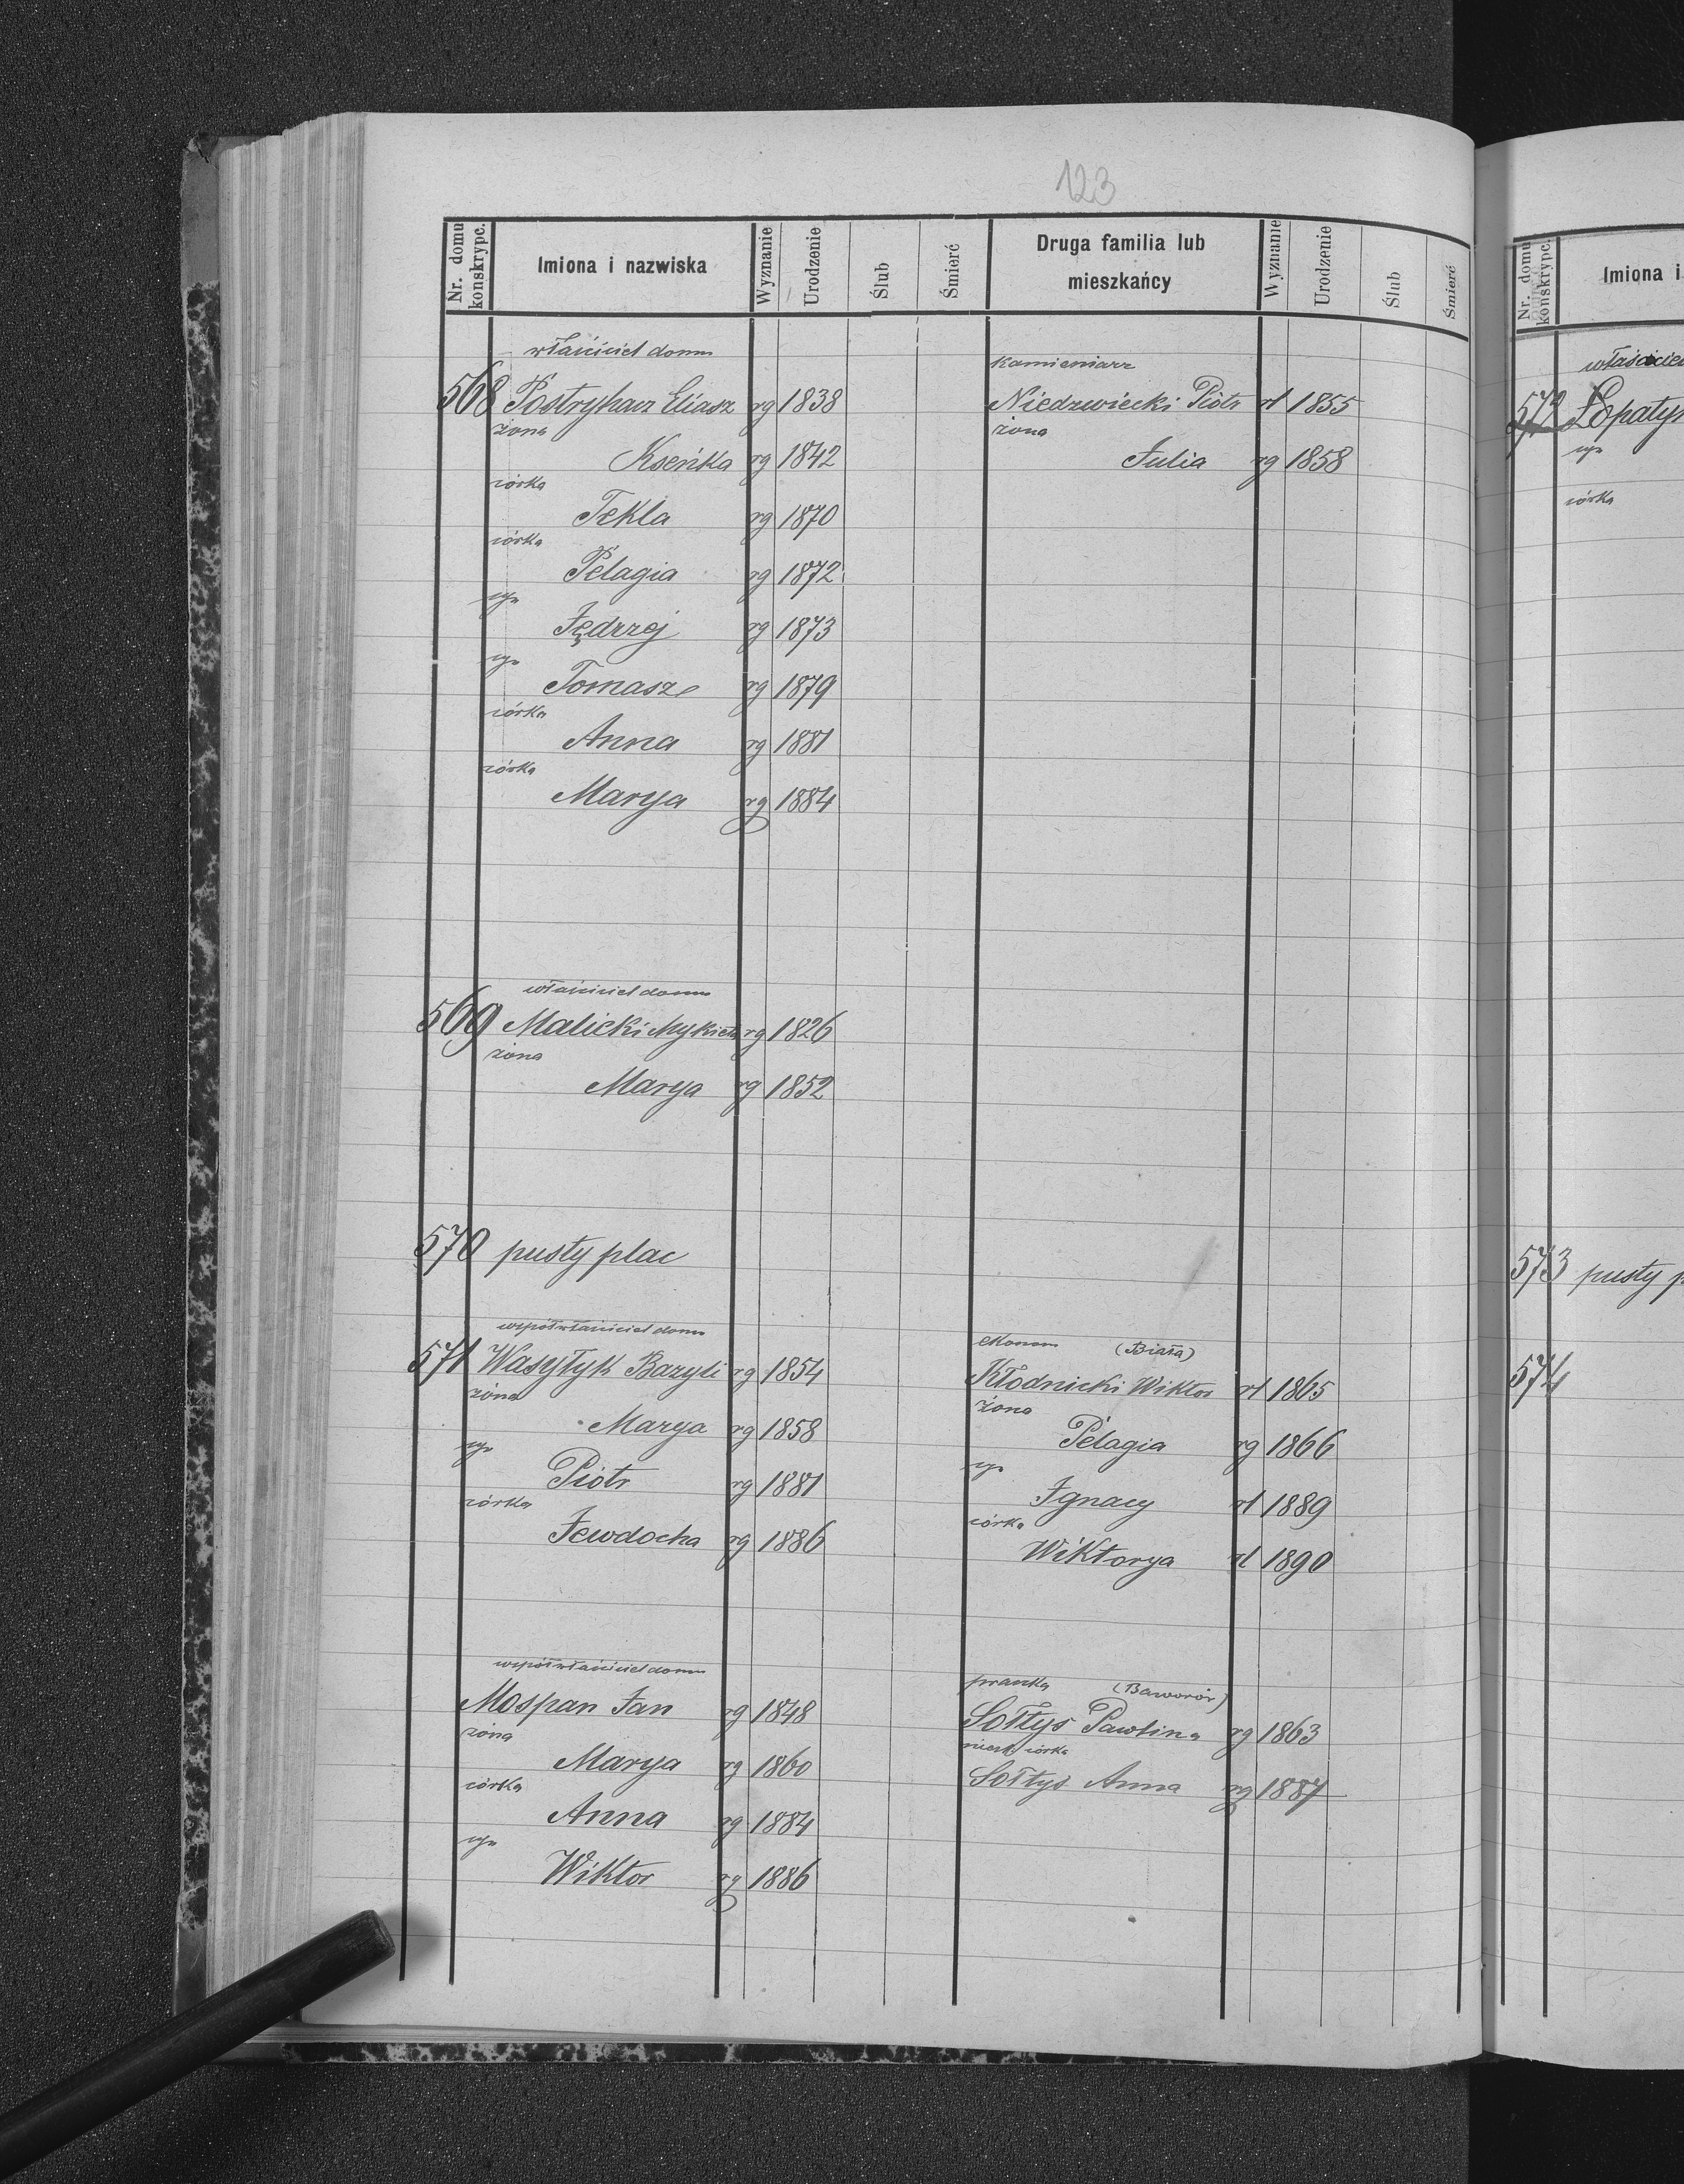 123
Nr. domu konskrypc. Imiona i nazwiska Wyznanie Urodzenie Ślub Śmierć Druga familia lub mieszkańcy Wyznanie Urodzenie Ślub Śmierć
właściciel domu
568 Postryhacz Eliasz rg 1838
żona
Kseńka rg 1842
córka
Tekla rg 1870
córka
Pelagia rg 1872
syn
Jędrzej rg 1873
syn
Tomasz rg 1879
córka
Anna rg 1881
córka
Marya rg 1884
kamieniarz
Niedzwiecki Piotr rł 1855
żona
Julia rg 1858
właściciel domu
569 Malicki Mykieta rg 1826
żona
Marya rg 1852
570 pusty plac
współwłaściciel domu
571 Wasyłyk Bazyli rg 1854
żona
Marya rg 1858
syn
Piotr rg 1881
córka
Jewdocha rg 1886
ekonom (Biała)
Kłodnicki Wiktor rł 1865
żona
Pelagia rg 1866
syn
Ignacy rł 1889
córka
Wiktorya rł 1890
współwłaściciel domu
Mospan Jan rg 1848
żona
Marya rg 1860
córka
Anna rg 1884
syn
Wiktor rg 1886
praczka (Baworów)
Sołtys Pawlina rg 1863
córka
Sołtys Anna rg 1887
Nr. domu konskrypc. Imiona i
właściciel
572 Łopatyn
syn
córka
573 pusty p
574